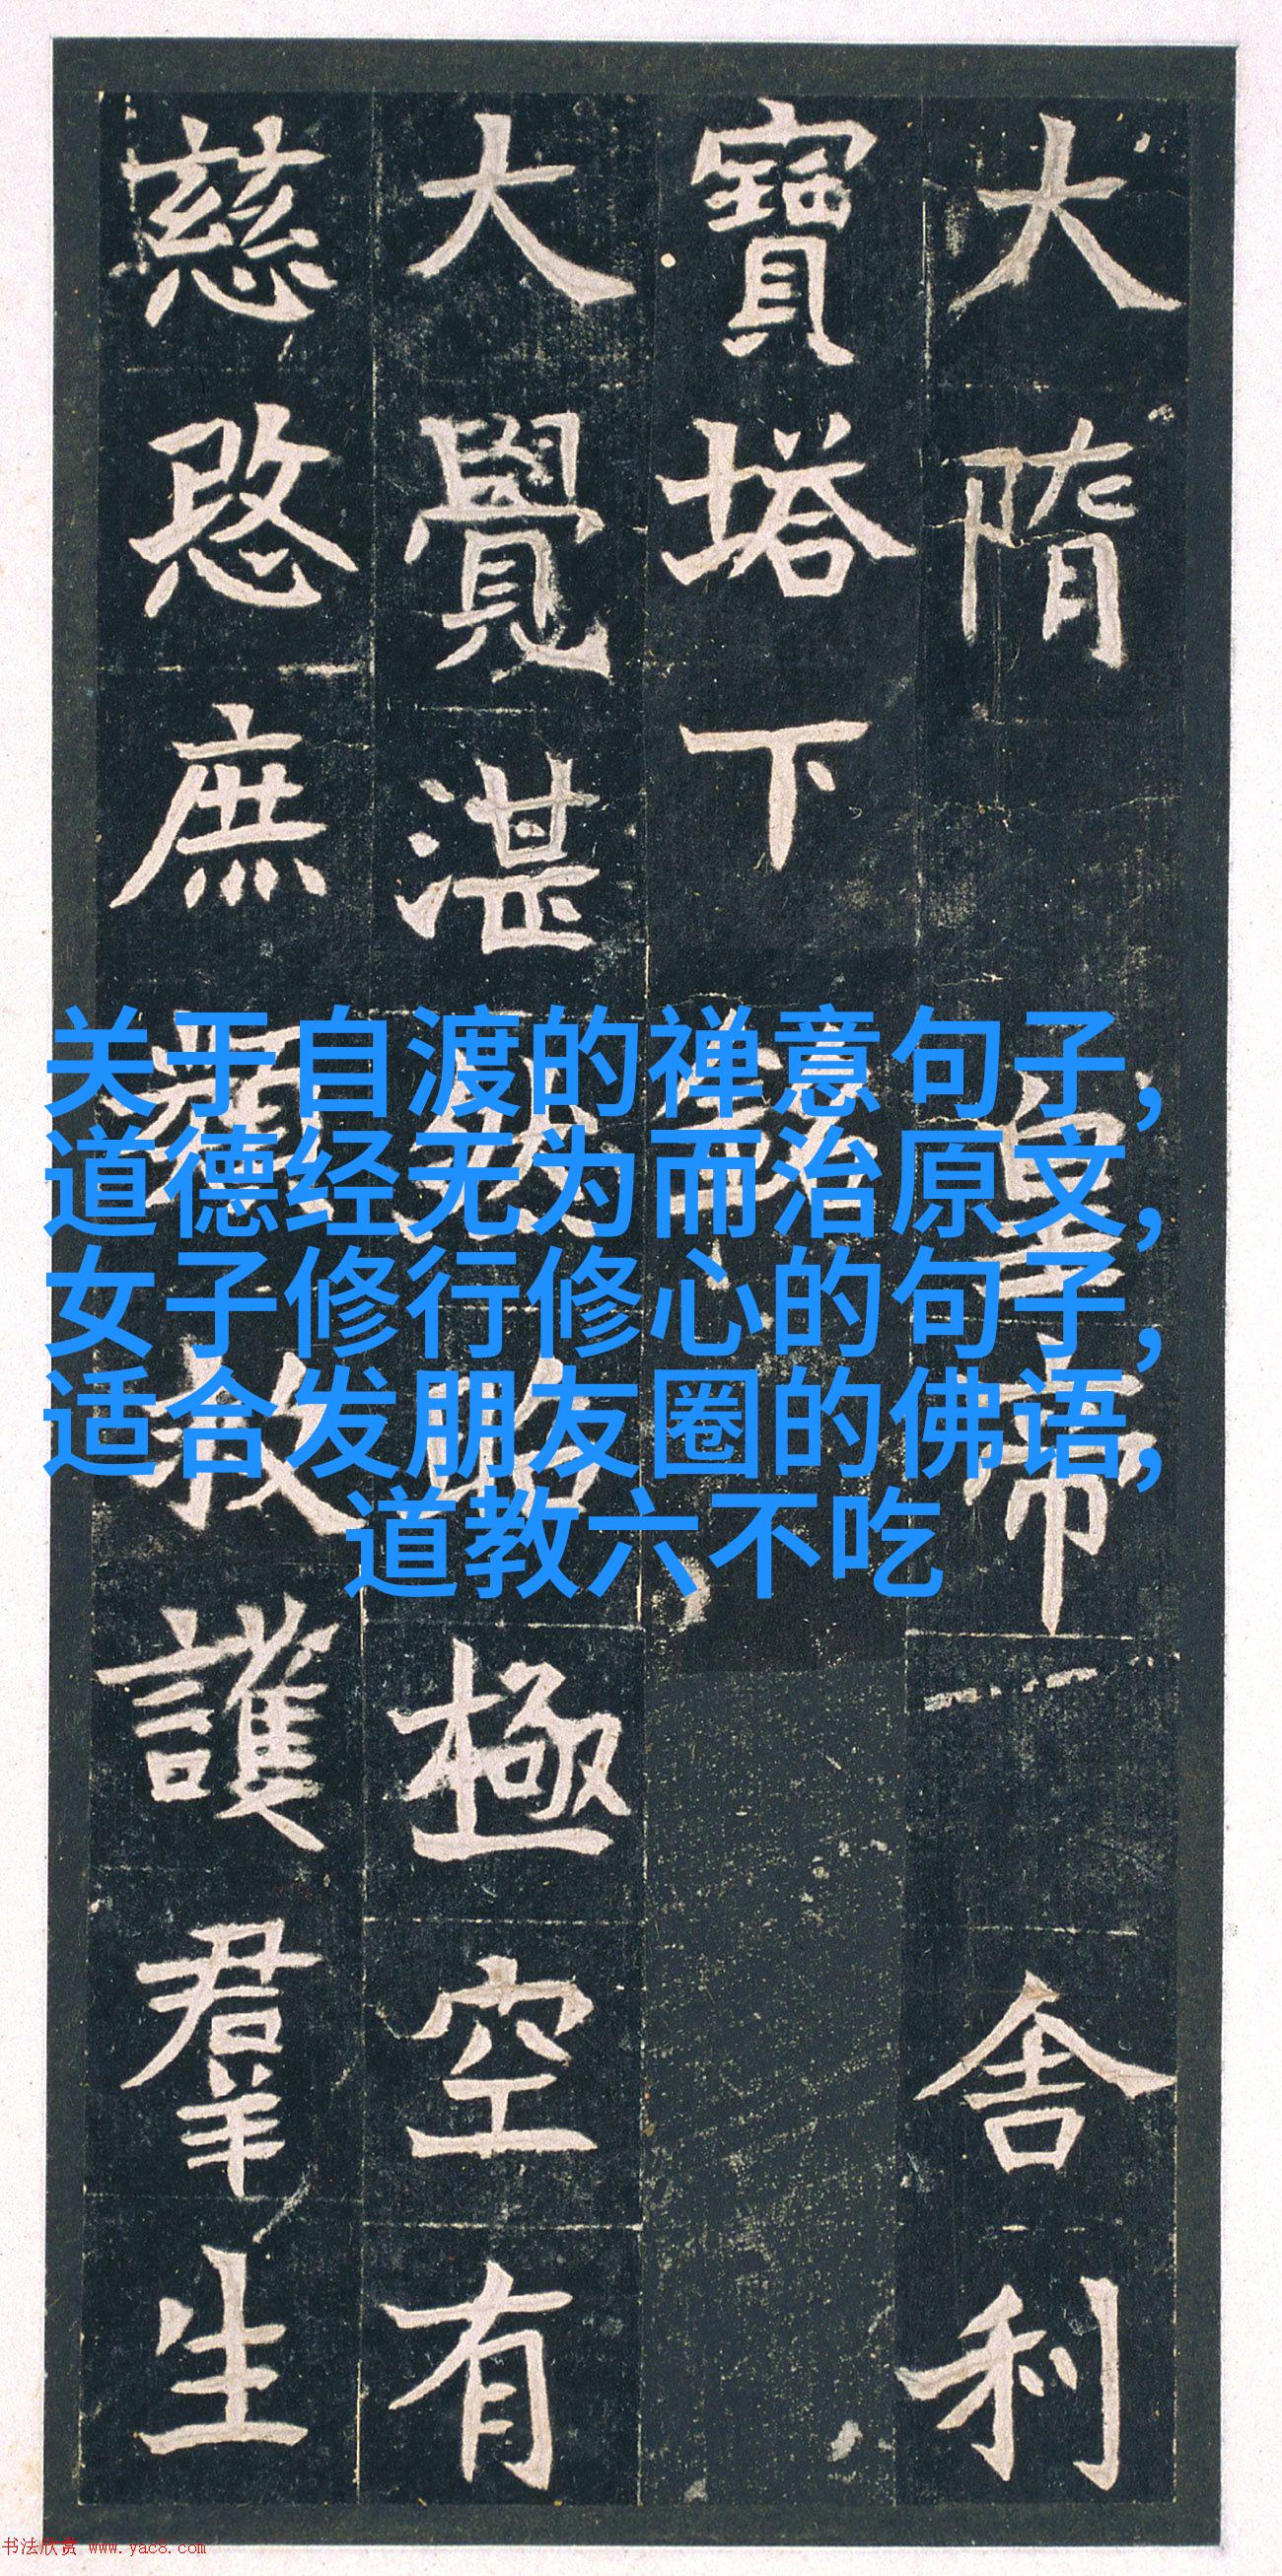 大隋皇帝舍利
寶塔下銘
大覺湛然昭極空有
慈愍庶類救護羣生
关于自渡的禅意句子,
道德经无为而治原文,
女子修行修心的句子,
适合发朋友圈的佛语,
道教六不吃
书法欣赏 www.yac8.com